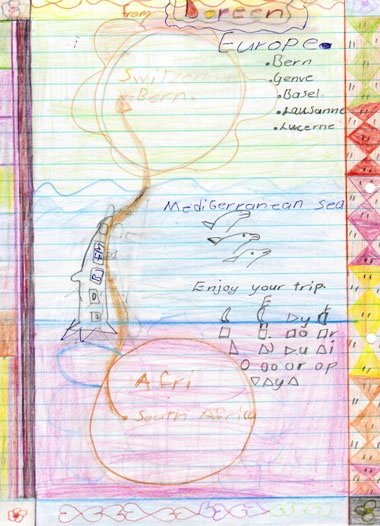 from Doreen
Europe.
Switzer
Bern.
• Bern
• Genve
• Basel
• Lausanne
• Lucerne
Mediterranean Sea
Enjoy your trip
Afri
South Africa